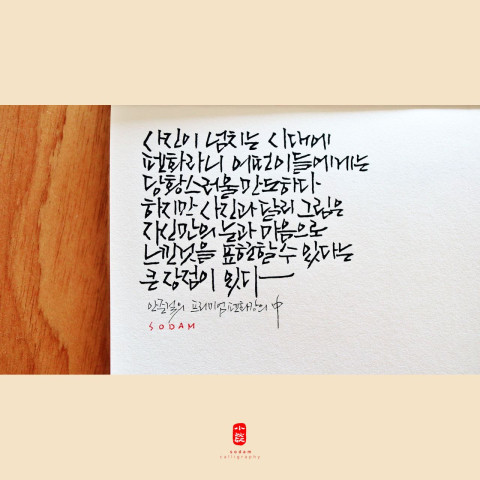 사진이 넘치는 시대에
펜화라니 어떤이들에게는
당황스러울만도하다
하지만 사진과 달리 그림은
자신만의 눈과 마음으로
느낀것을 표현할 수 있다는
큰 장점이 있다
안충걸의 프리미엄펜화강의 中
SODAM
小談
sodam
calligraphy